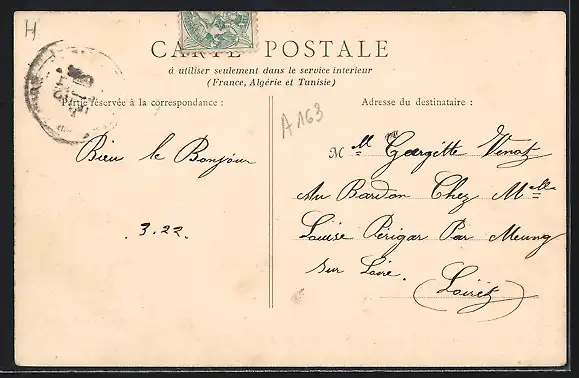 H
CARTE POSTALE
à utiliser seulement dans le service interieur
(France, Algérie et Tunisie)
Partie réservée à la correspondance :
Adresse du destinataire :
A 163
Bien le Bonjour
. 3.22.
M elle Georgette Venot
Au Bardon Chez Melle
Louise Périgar Par Meung
sur Loire.
(Loiret)